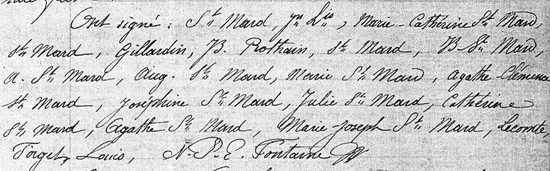 Ont signé : St Mard, Jn Lis, Marie-Catherine St Mard,
St Mard, Gillardin, B. Rothain, St Mard, B. St Mard,
A. St Mard, Aug. St Mard, Marie St Mard, Agathe Clémence
St Mard, Joséphine St Mard, Julie St Mard, Catherine
St Mard, Agathe St Mard, Marie Joseph St Mard, Lecomte
Forget, Louis, N. P. E. Fontaine